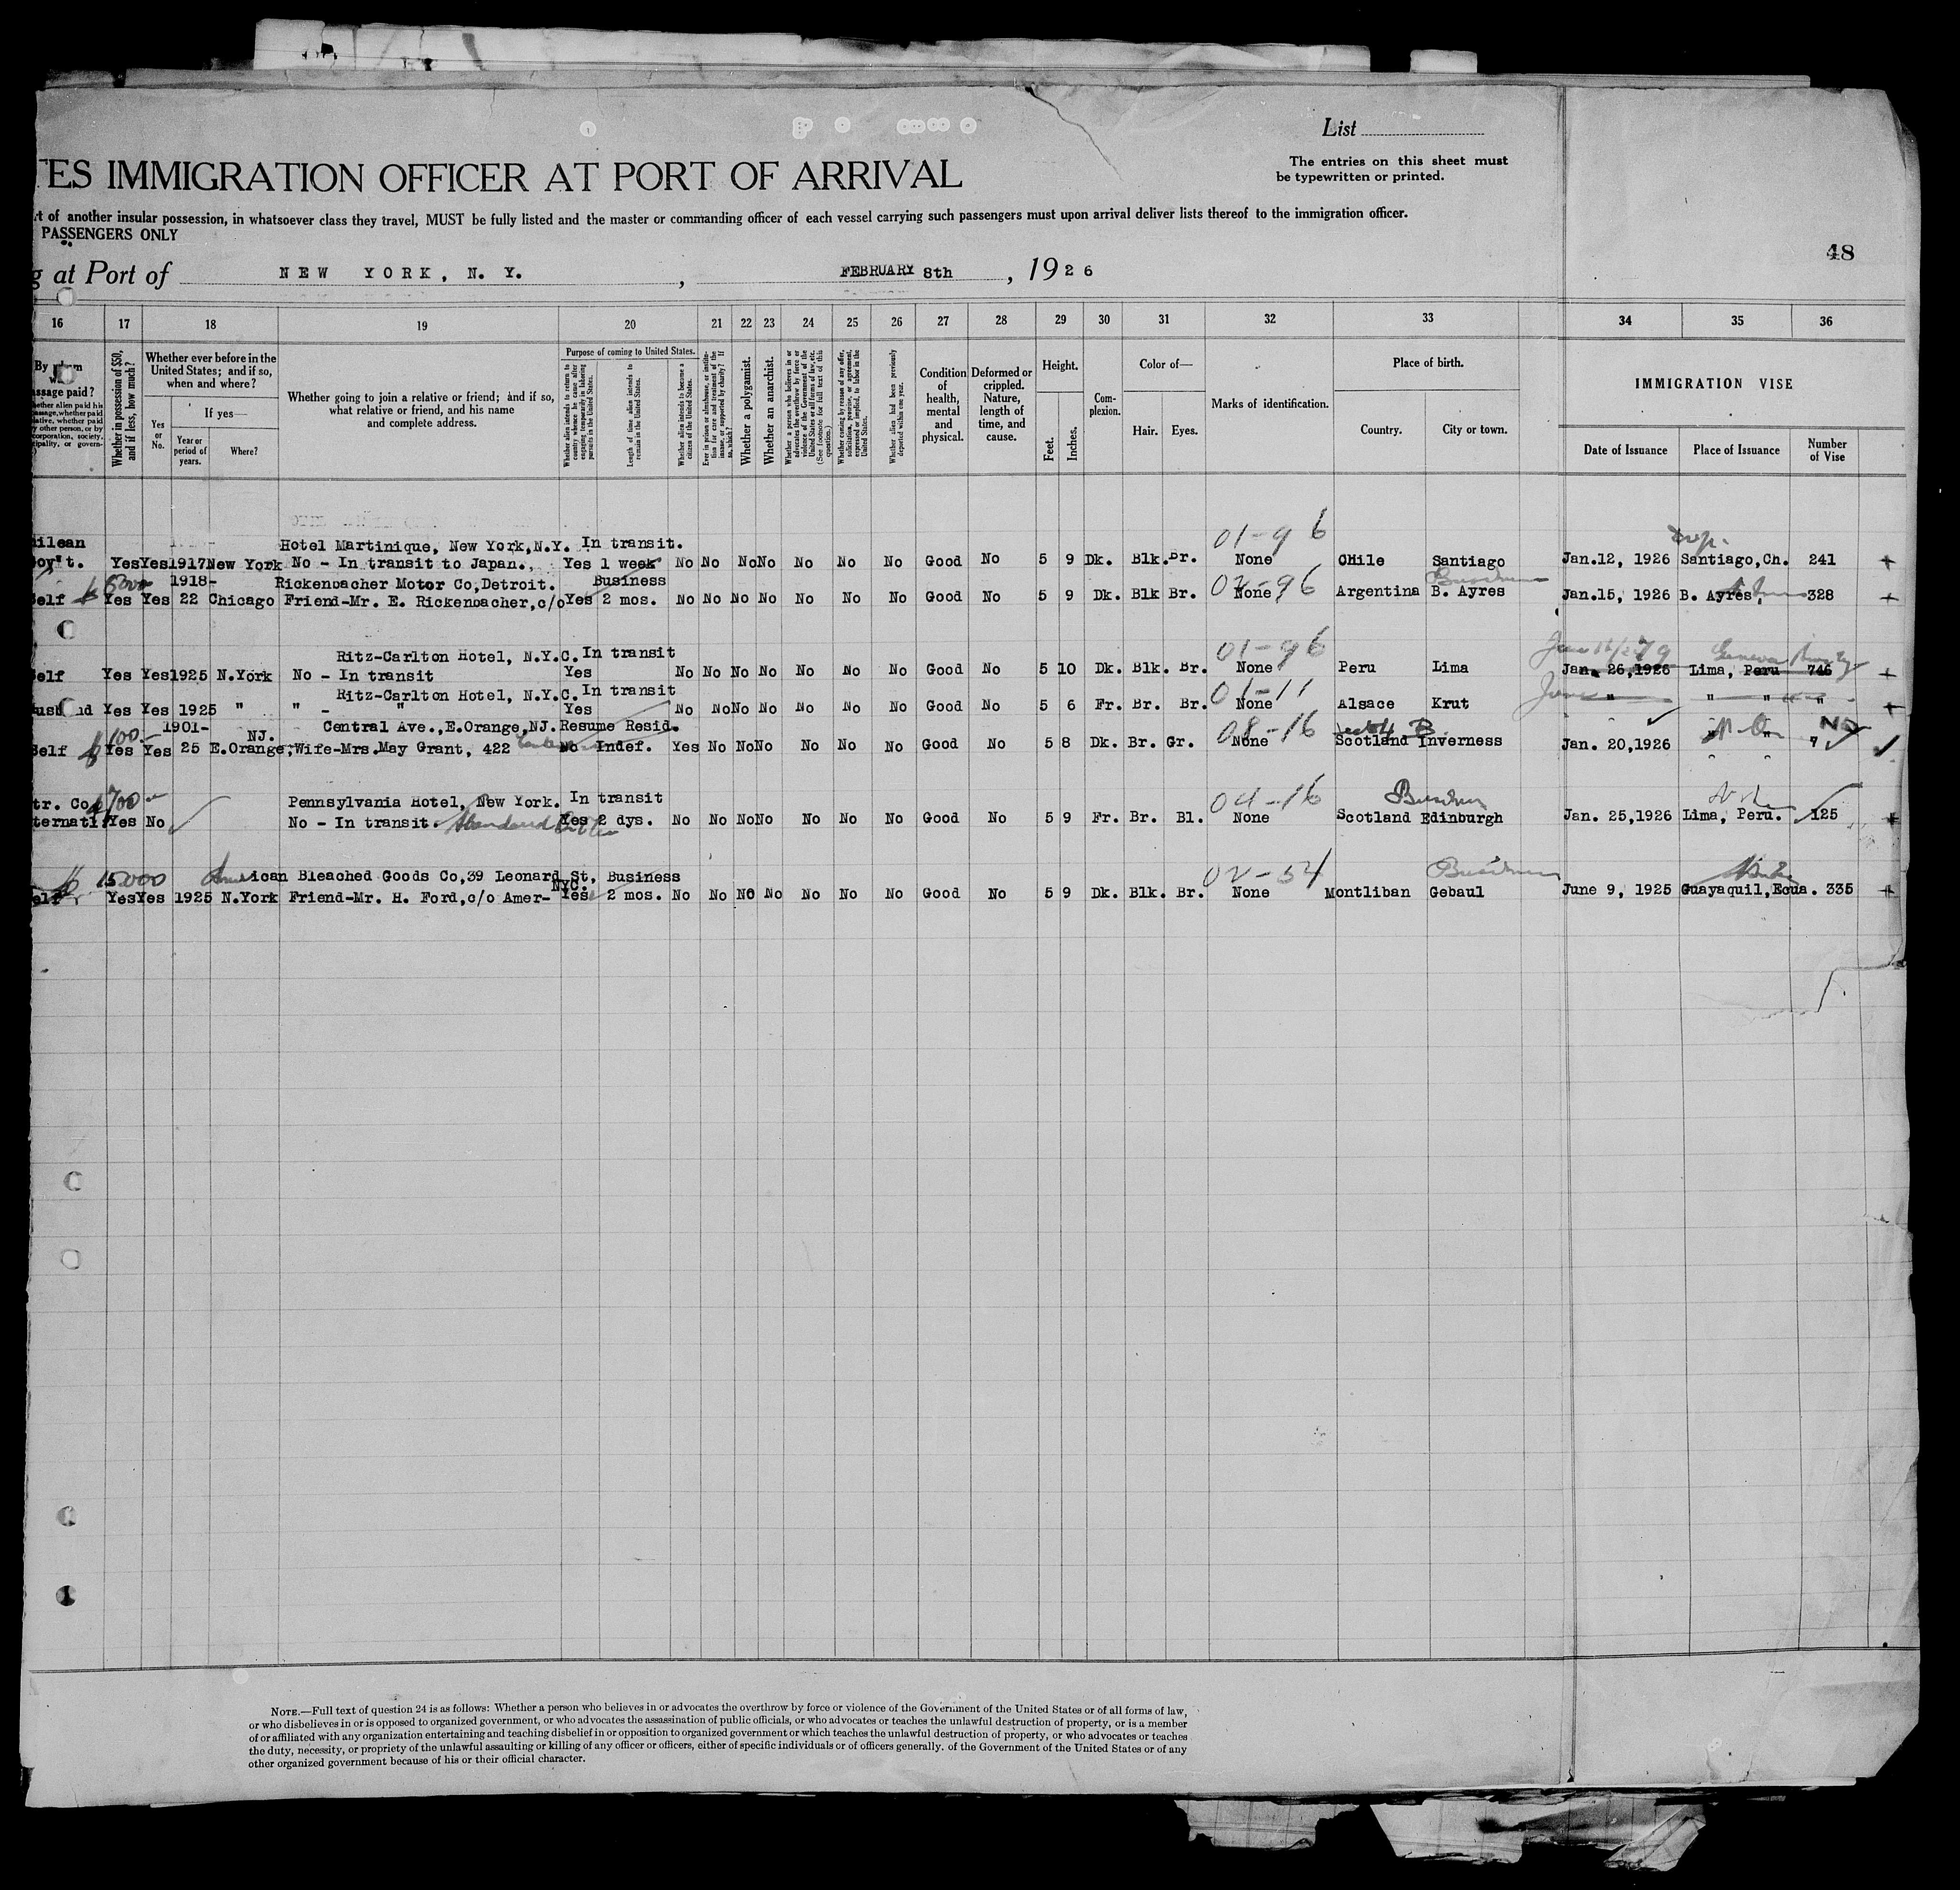 List
The entries on this sheet must
be typewritten or printed.
TES IMMIGRATION OFFICER AT PORT OF ARRIVAL
rt of another insular possession, in whatsoever class they travel, MUST be fully listed and the master or commanding officer of each vessel carrying such passengers must upon arrival deliver lists thereof to the immigration officer.
PASSENGERS ONLY
48
g at Port of NEW YORK, N. Y. , FEBRUARY 8th , 1926
16 17 18 19 20 21 22 23 24 25 26 27 28 29 30 31 32 33 34 35 36
Whether in possession of $50, and if less, how much?
Whether ever before in the United States; and if so, when and where?
Yes or No.
If yes—
Year or period of years.
Where?
Whether going to join a relative or friend; and if so, what relative or friend, and his name and complete address.
Purpose of coming to United States.
Whether alien intends to return to country whence he came after engaging temporarily in laboring pursuits in the United States.
Length of time alien intends to remain in the United States.
Whether alien intends to become a citizen of the United States.
Ever in prison or almshouse, or institution for care and treatment of the insane, or supported by charity? If so, which?
Whether a polygamist.
Whether an anarchist.
Whether coming by reason of any offer, solicitation, promise, or agreement, expressed or implied, to labor in the United States.
Whether alien had been previously deported within one year.
Condition of health, mental and physical.
Deformed or crippled. Nature, length of time, and cause.
Height.
Feet.
Inches.
Complexion.
Color of—
Hair.
Eyes.
Marks of identification.
Place of birth.
Country.
City or town.
IMMIGRATION VISE
Date of Issuance
Place of Issuance
Number of Vise
01-96
ilean Hotel Martinique, New York, N.Y. In transit.
ov't. Yes Yes 1917 New York No - In transit to Japan., Yes 1 week No No No No No No No Good No 5 9 Dk. Blk. Br. None Chile Santiago Jan.12, 1926 Santiago,Ch. 241
5000 1918- Rickenbacher Motor Co,Detroit. Business 02-96
Self Yes Yes 22 Chicago Friend-Mr. E. Rickenbacher,c/o Yes 2 mos. No No No No No No No Good No 5 9 Dk. Blk Br. None Argentina B. Ayres Jan.15, 1926 B. Ayres, 328
Ritz-Carlton Hotel, N.Y.C. In transit 01-96
Self Yes Yes 1925 N.York No - In transit Yes No No No No No No No Good No 5 10 Dk. Blk. Br. None Peru Lima Jan. 26,1926 Lima, Peru 746
Ritz-Carlton Hotel, N.Y.C. In transit 01-11
Husband Yes Yes 1925 " " - " Yes No No No No No No No Good No 5 6 Fr. Br. Br. None Alsace Krut " " " "
100 1901- NJ. Central Ave.,E.Orange,NJ. Resume Resid. 08-16
Self Yes Yes 25 E.Orange; Wife-Mrs.May Grant, 422 No Indef. Yes No No No No No No Good No 5 8 Dk. Br. Gr. None Scotland Inverness Jan. 20,1926 " " 7
700 04-16
tr. Co. Pennsylvania Hotel, New York. In transit
ternatl. Yes No No - In transit. Yes 2 dys. No No No No No No No Good No 5 9 Fr. Br. Bl. None Scotland Edinburgh Jan. 25,1926 Lima, Peru. 125
15000 American Bleached Goods Co,39 Leonard St, Business 02-54
NYC.
elf Yes Yes 1925 N.York Friend-Mr. H. Ford,c/o Amer- Yes 2 mos. No No No No No No No Good No 5 9 Dk. Blk. Br. None Montliban Gebaul June 9, 1925 Guayaquil,Ecua. 335
NOTE.—Full text of question 24 is as follows: Whether a person who believes in or advocates the overthrow by force or violence of the Government of the United States or of all forms of law,
or who disbelieves in or is opposed to organized government, or who advocates the assassination of public officials, or who advocates or teaches the unlawful destruction of property, or is a member
of or affiliated with any organization entertaining and teaching disbelief in or opposition to organized government or which teaches the unlawful destruction of property, or who advocates or teaches
the duty, necessity, or propriety of the unlawful assaulting or killing of any officer or officers, either of specific individuals or of officers generally. of the Government of the United States or of any
other organized government because of his or their official character.